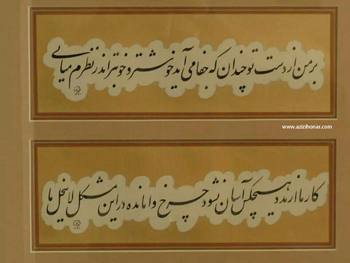 بر من از دست تو چندان که جفا می آید خوشتر و خوبتر اندر نظرم میایی
www.azizihonar.com
کار ما از مدد هیچکس آسان نشود چرخ وامانده در این مشکل لاینحل ما